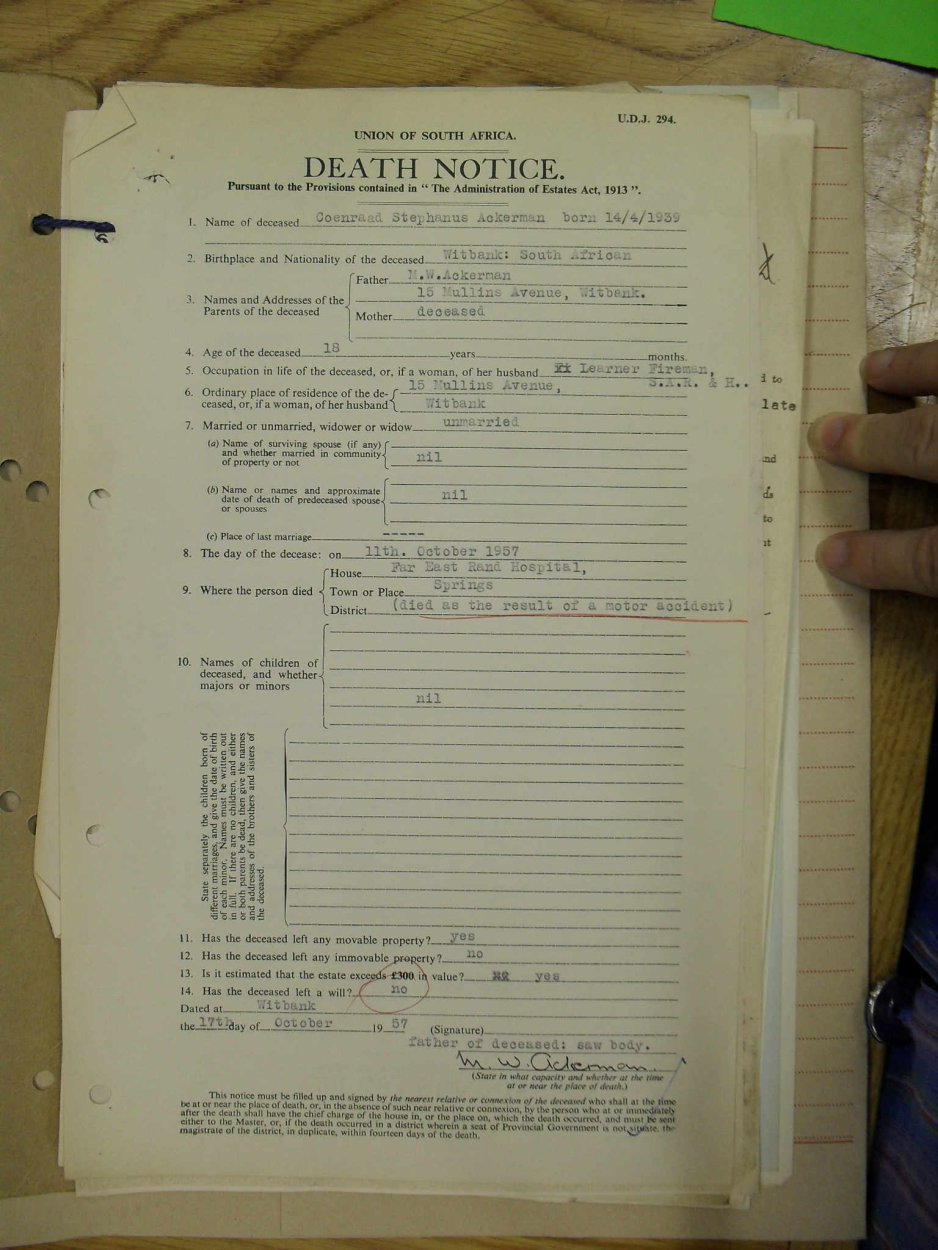 U.D.J. 294.
UNION OF SOUTH AFRICA.
DEATH NOTICE.
Pursuant to the Provisions contained in “ The Administration of Estates Act, 1913 ”.
1. Name of deceased Coenraad Stephanus Ackerman born 14/4/1939
2. Birthplace and Nationality of the deceased Witbank: South African
3. Names and Addresses of the Parents of the deceased
Father M.W.Ackerman
15 Mullins Avenue, Witbank.
Mother deceased
4. Age of the deceased 18 years months.
5. Occupation in life of the deceased, or, if a woman, of her husband Learner Fireman,
S.A.R. & H..
6. Ordinary place of residence of the de- 15 Mullins Avenue,
ceased, or, if a woman, of her husband Witbank
7. Married or unmarried, widower or widow unmarried
(a) Name of surviving spouse (if any)
and whether married in community nil
of property or not
(b) Name or names and approximate
date of death of predeceased spouse nil
or spouses
(c) Place of last marriage -----
8. The day of the decease: on 11th. October 1957
House Far East Rand Hospital,
9. Where the person died Town or Place Springs
District (died as the result of a motor accident)
10. Names of children of
deceased, and whether
majors or minors
nil
State separately the children born of
different marriages, and give the date of birth
of each minor. Names must be written out
in full. If there are no children, and either
or both parents be dead, then give the names
and addresses of the brothers and sisters of
the deceased.
11. Has the deceased left any movable property? yes
12. Has the deceased left any immovable property? no
13. Is it estimated that the estate exceeds £300 in value? yes
14. Has the deceased left a will? no
Dated at Witbank
the 17th day of October 19 57 (Signature)
father of deceased: saw body.
M. W. Ackerman
(State in what capacity and whether at the time
at or near the place of death.)
This notice must be filled up and signed by the nearest relative or connexion of the deceased who shall at the time
be at or near the place of death, or, in the absence of such near relative or connexion, by the person who at or immediately
after the death shall have the chief charge of the house in, or the place on, which the death occurred, and must be sent
either to the Master, or, if the death occurred in a district wherein a seat of Provincial Government is not situate, the
magistrate of the district, in duplicate, within fourteen days of the death.
to
late
to